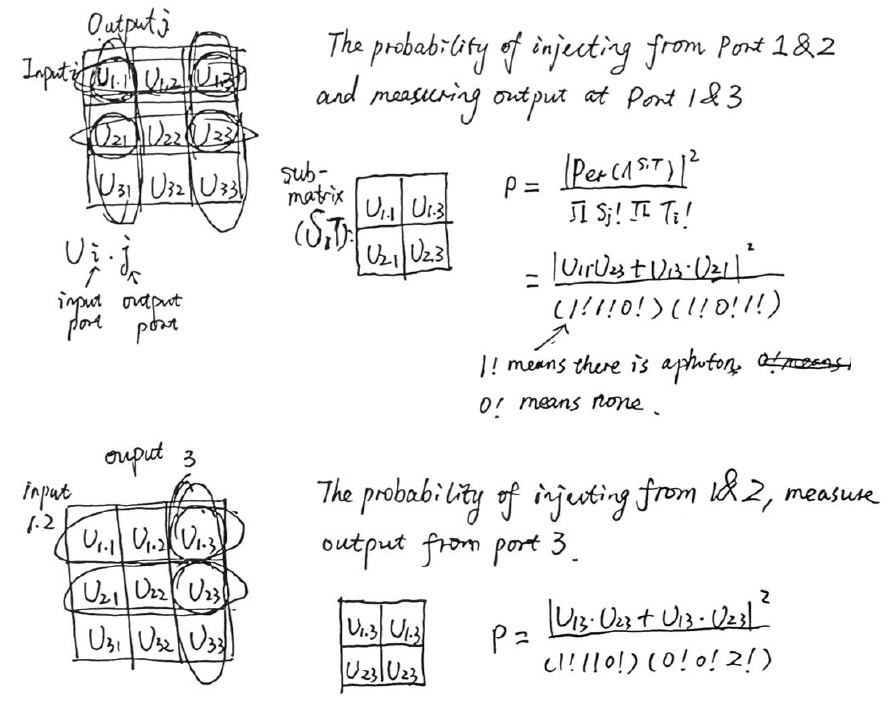 Output j
Input i
U1.1 U1.2 U1.3
U21 U22 U23
U31 U32 U33
Ui.j
input port
output port
The probability of injecting from Port 1&2
and measuring output at Port 1&3
sub-
matrix
(S,T):
U1.1 U1.3
U2.1 U2.3
P = |Per(Λ^{S,T})|² / Π Sj! Π Ti!
= |U11·U23 + U13·U21|² / (1!1!0!)(1!0!1!)
1! means there is a photon,
0! means none.
ouput 3
input
1.2
U1.1 U1.2 U1.3
U2.1 U22 U23
U31 U32 U33
The probability of injecting from 1&2, measure
output from port 3.
U1.3 U1.3
U23 U23
P = |U13·U23 + U13·U23|² / (1!1!0!)(0!0!2!)